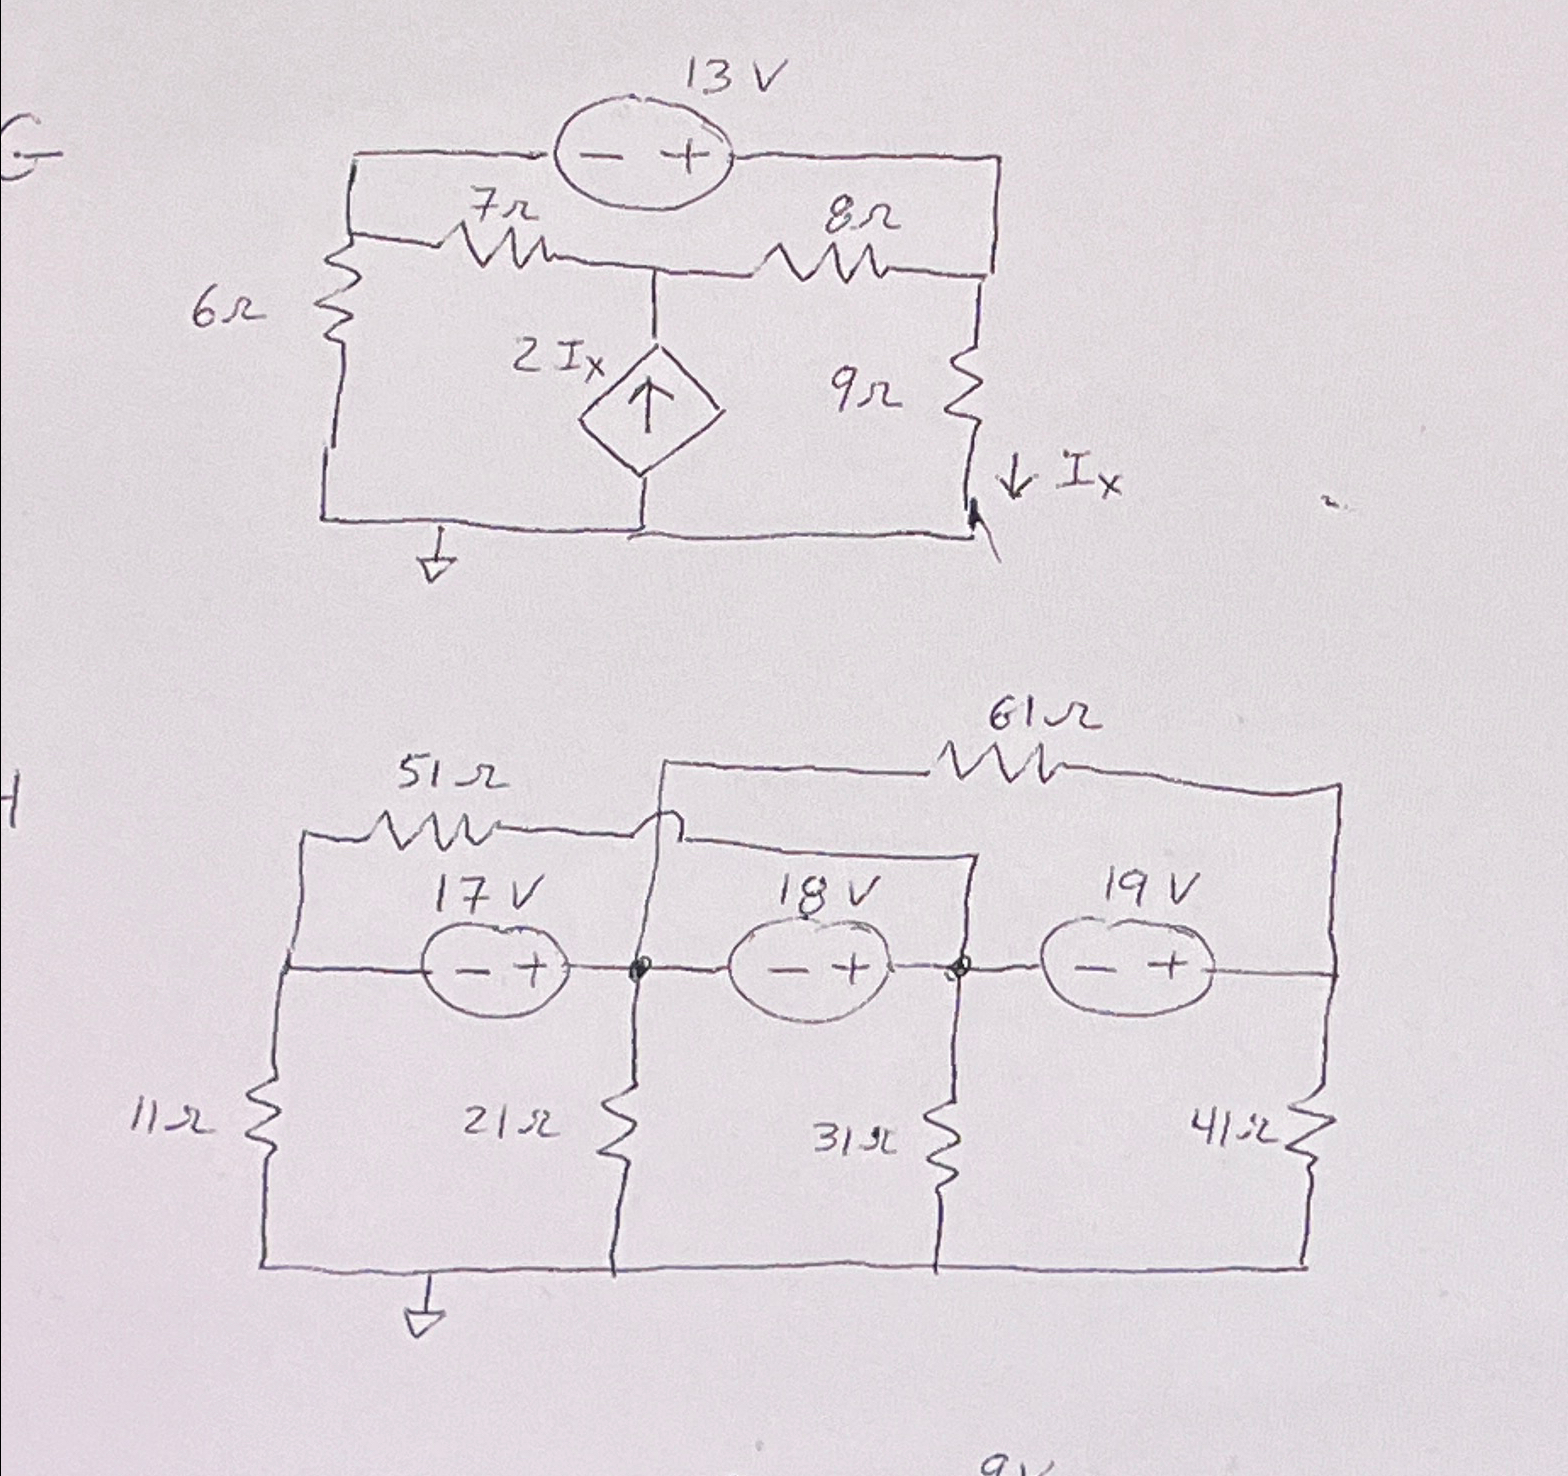 G
13 V
- +
7Ω 8Ω
6Ω
2 Ix
9Ω
↓ Ix
61Ω
51Ω
H
17 V 18 V 19 V
- + - + - +
11Ω 21Ω 31Ω 41Ω
9V